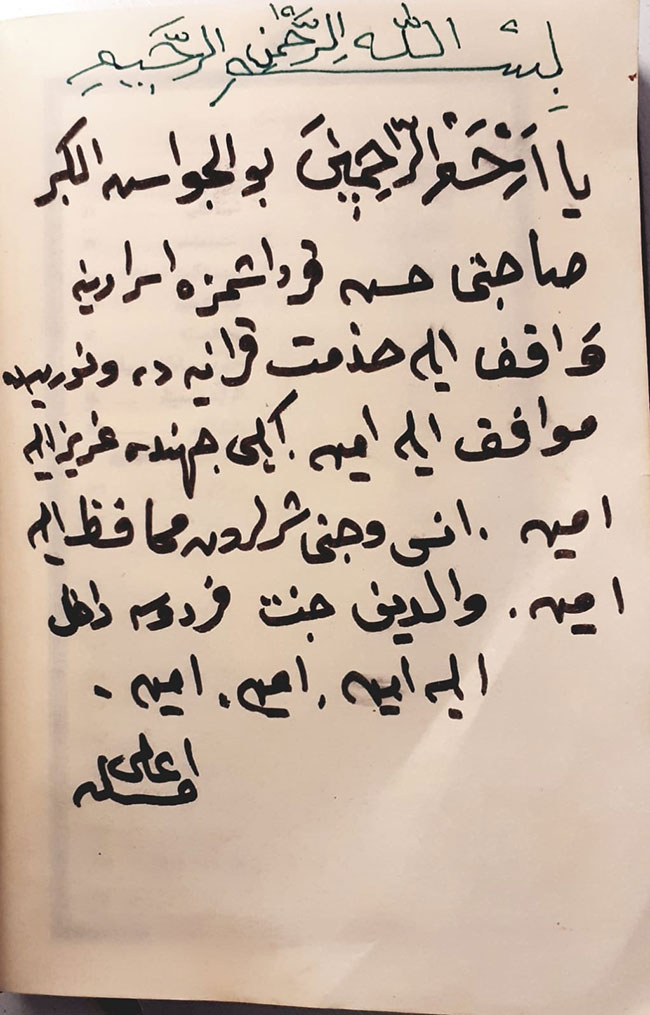 بِسْــمِ اللّٰهِ الرَّحْمٰنِ الرَّحِيمِ
يا اَرْحَمَ الرَّاحِمِينَ بو الجواسه الكبر
صاحبى حسن قرداشمزه اسرارينه
وَاقف ايله خذمت قرانيه ده ونوريه‌ده
موافف ايله امين. ايكى جهنده عزيز ايله
امين . انسى وجنى شرلردن محافظ ايله
امين. والدينى جنت فردوسه داخل
ايله امين . امين . امين .